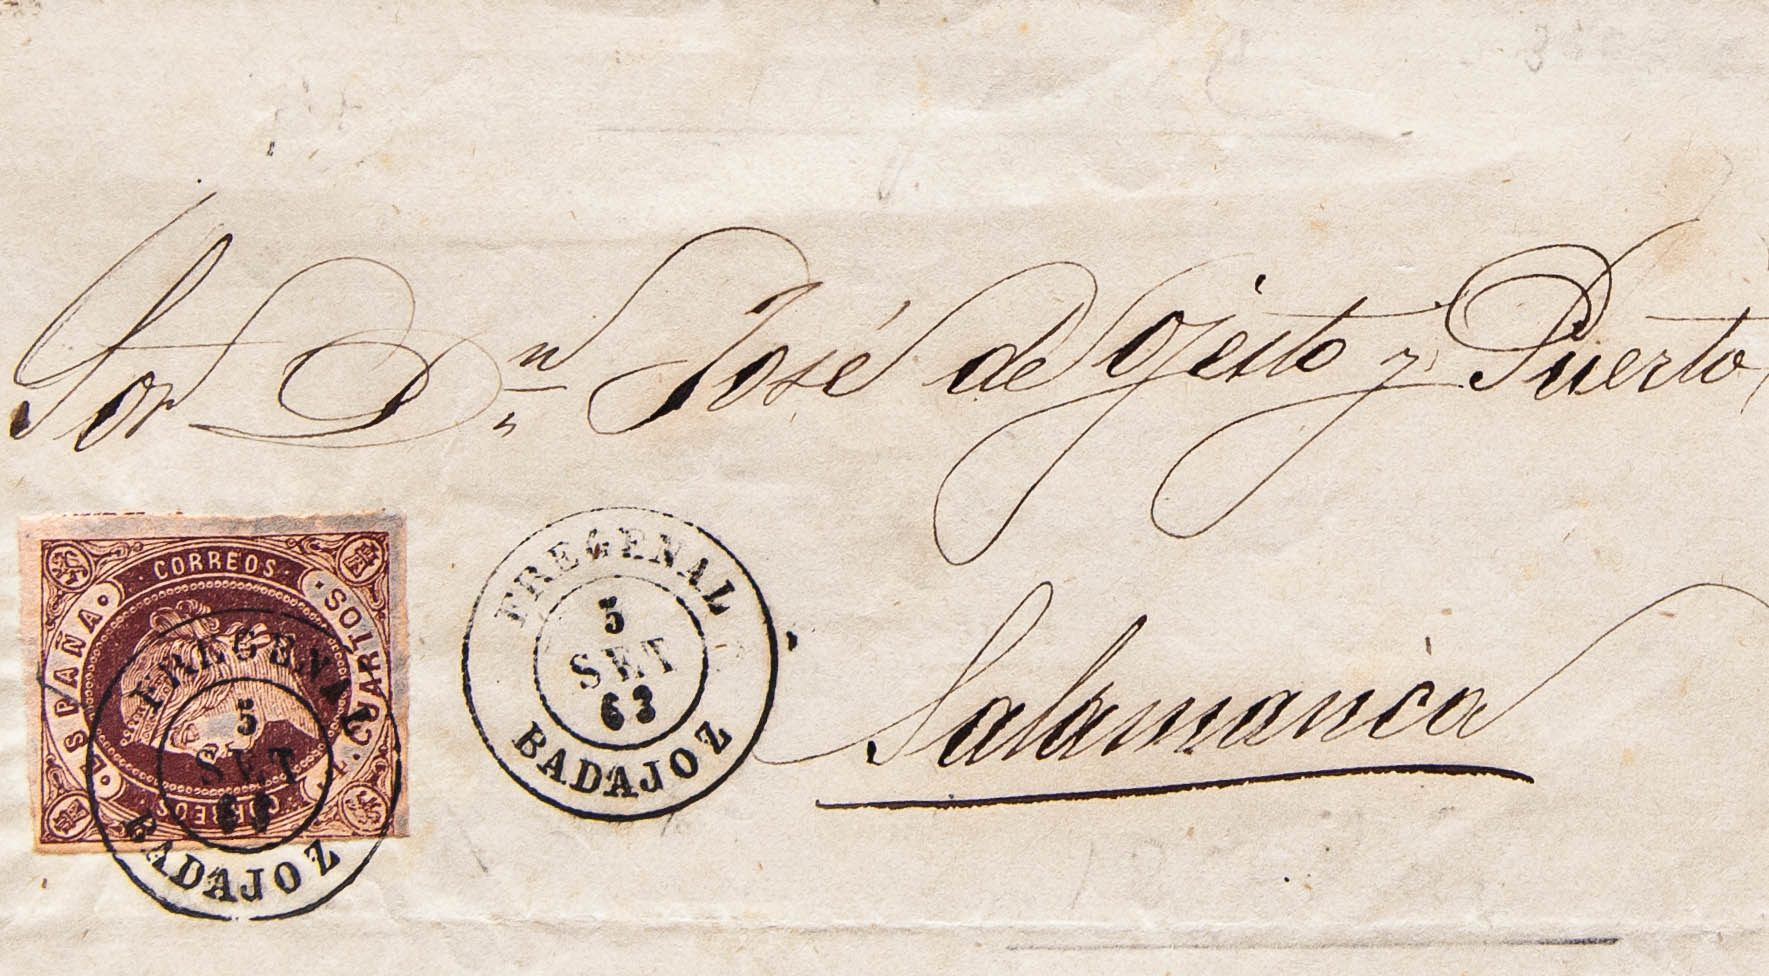 Sor Dn José de Ojesto y Puerto
Salamanca
CORREOS
ESPAÑA
CUARTOS
FREGENAL
5
SET
63
BADAJOZ
FREGENAL
5
SET
63
BADAJOZ